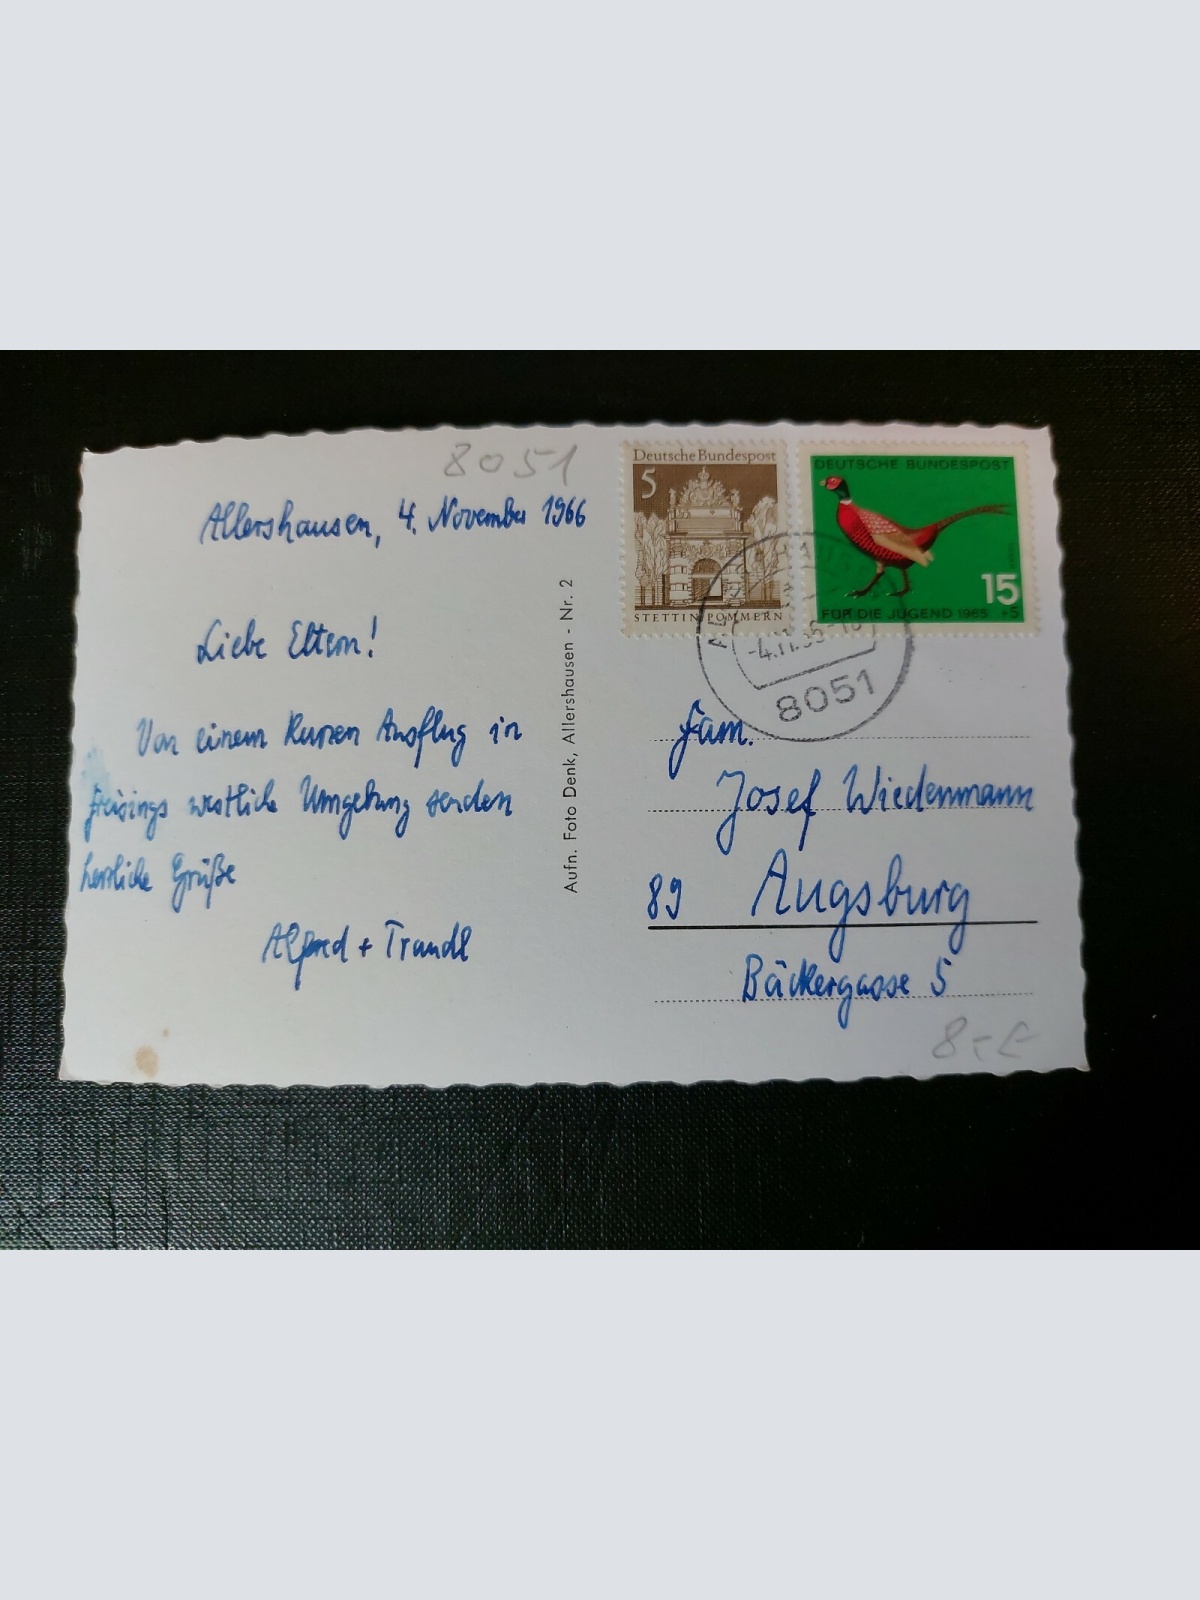 8051
Allershausen, 4. November 1966
Liebe Eltern!
Von einem kurzen Ausflug in
Freisings westliche Umgebung senden
herzliche Grüße
Alfred + Traudl
Aufn. Foto Denk, Allershausen - Nr. 2
Deutsche Bundespost
5
STETTIN/POMMERN
DEUTSCHE BUNDESPOST
15
+5
FÜR DIE JUGEND 1965
8051
Fam.
Josef Wiedenmann
89 Augsburg
Bäckergasse 5